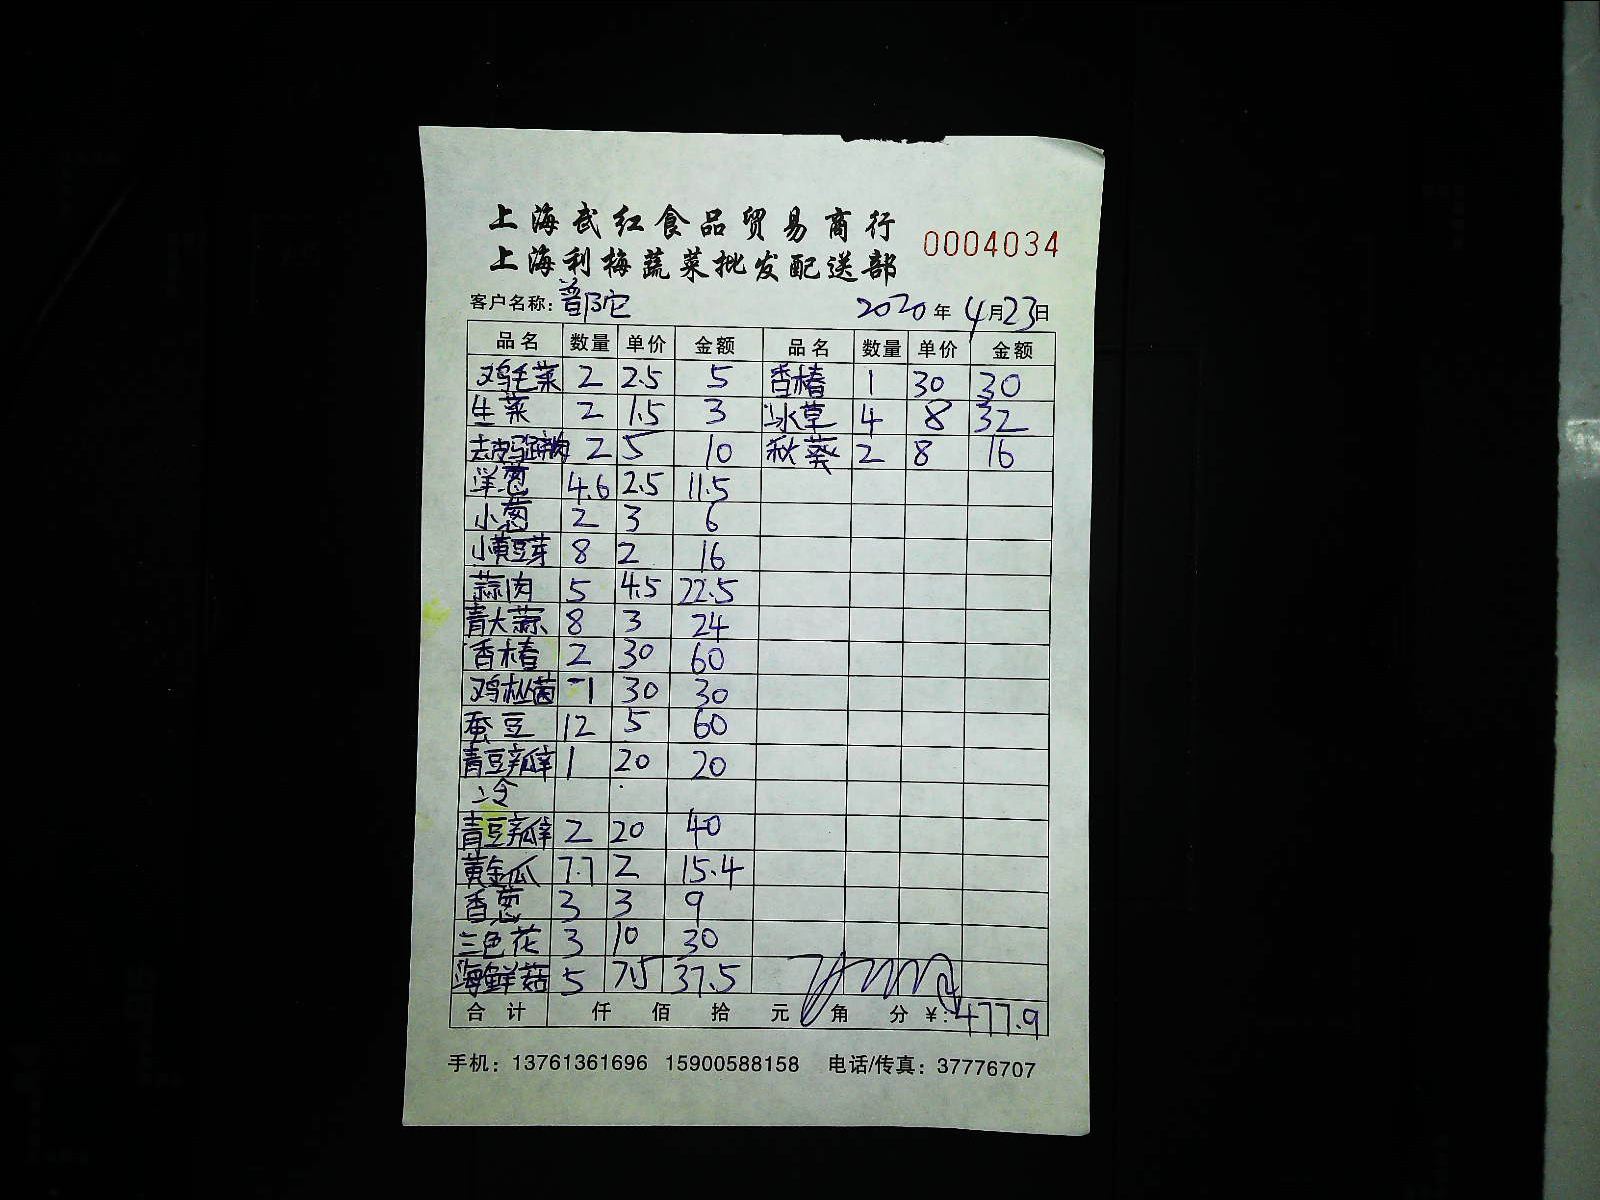 上海武红食品贸易商行
上海利梅蔬菜批发配送部
0004034
客户名称: 普陀 2020年4月23日
品名 数量 单价 金额 品名 数量 单价 金额
鸡毛菜 2 2.5 5 香椿 1 30 30
生菜 2 1.5 3 冰草 4 8 32
去皮马蹄肉 2 5 10 秋葵 2 8 16
洋葱 4.6 2.5 11.5
小葱 2 3 6
小黄豆芽 8 2 16
蒜肉 5 4.5 22.5
青大蒜 8 3 24
香椿 2 30 60
鸡枞菌 1 30 30
蚕豆 12 5 60
青豆瓣 1 20 20
冷
青豆瓣 2 20 40
黄金瓜 7.7 2 15.4
香葱 3 3 9
三色花 3 10 30
海鲜菇 5 7.5 37.5
合计 仟 佰 拾 元 角 分 ¥: 477.9
手机: 13761361696 15900588158 电话/传真: 37776707